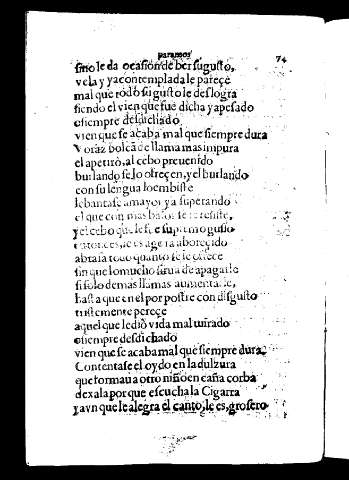 paramos
74
sino le da ocasion de ber su gusto,
vela y ya contemplada le pareçe
mal que rodò su gusto le deslogra
siendo el vien que fue dicha y a pesado
o siempre desdichado
vien que se acaba mal que siempre dura
Voraz bolcā de llama mas impura
el apetitò, al cebo preuenido
burlando se lo ofreçen, y el burlando
con su lengua lo embiste
lebantase amayor ya superando
el que con mas se resiste,
y el cebo que fue supremo gusto
entonces, le es agera aborreçido
abrasa todo quanto se le ofrece
sin que lo mucho sirua de apagarle
si solo de mas llamas aumentarle,
hasta que en el por postre con disgusto
tristemente pereçe
aquel que le diò vida mal tuirado
o siempre desdichado
vien que se acaba mal que siempre dura,
Contentase el oydo en la dulzura
que formaua otro niño en caña corba
dexala por que escucha la Cigarra
y avn que le alegra el canto, le es, grosero